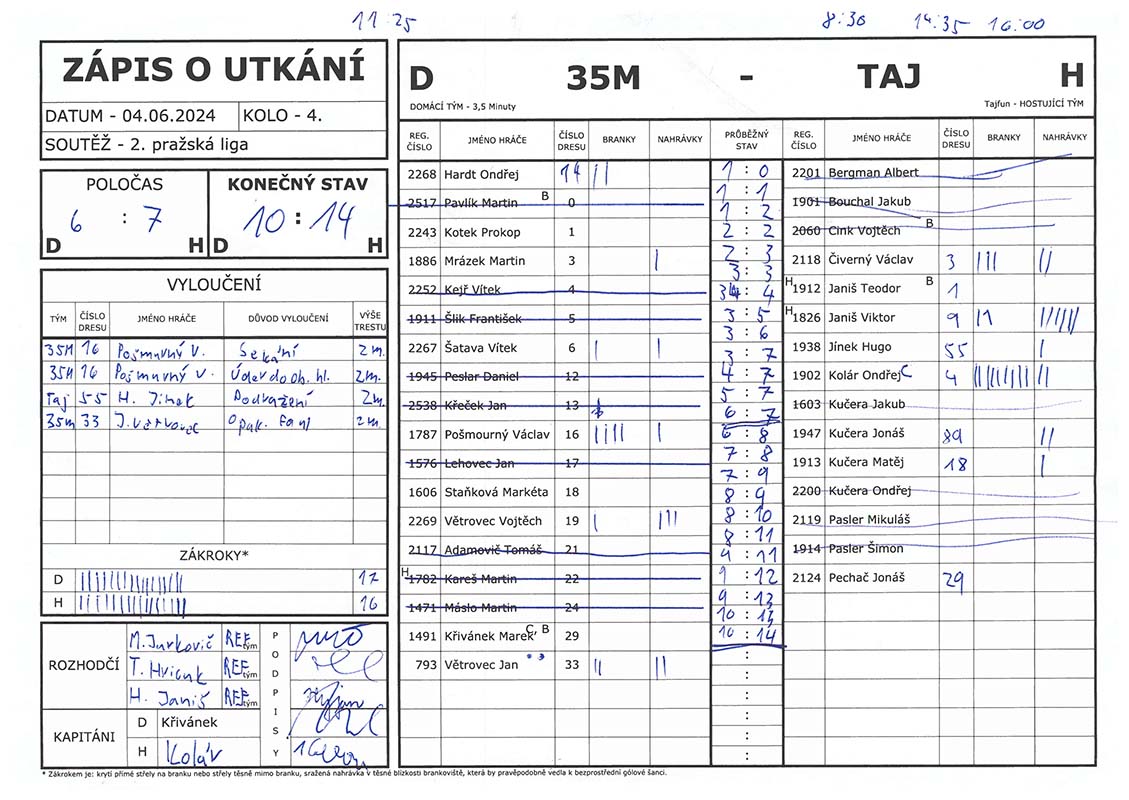 11:25 8:30 14:35 16:00
ZÁPIS O UTKÁNÍ
DATUM - 04.06.2024 KOLO - 4.
SOUTĚŽ - 2. pražská liga
POLOČAS
6 : 7
D H
KONEČNÝ STAV
10 : 14
D H
VYLOUČENÍ
TÝM ČÍSLO DRESU JMÉNO HRÁČE DŮVOD VYLOUČENÍ VÝŠE TRESTU
35M 16 Pošmurný V. Sekání 2m.
35M 16 Pošmurný V. Úder do ob. hl. 2m.
Taj 55 H. Jínek Podražení 2m.
35m 33 J. Větrovec Opak. faul 2m.
ZÁKROKY*
D 17
H 16
ROZHODČÍ
M. Jurkovič REF tým
T. Hvienk REF tým
H. Janiš REF tým
PODPISY
KAPITÁNI
D Křivánek
H Kolář
D 35M - TAJ H
DOMÁCÍ TÝM - 3,5 Minuty Tajfun - HOSTUJÍCÍ TÝM
REG. ČÍSLO JMÉNO HRÁČE ČÍSLO DRESU BRANKY NAHRÁVKY PRŮBĚŽNÝ STAV REG. ČÍSLO JMÉNO HRÁČE ČÍSLO DRESU BRANKY NAHRÁVKY
2268 Hardt Ondřej 14 ||
2517 Pavlík Martin B 0
2243 Kotek Prokop 1
1886 Mrázek Martin 3 |
2252 Kejř Vítek 4
1911 Šlik František 5
2267 Šatava Vítek 6 | |
1945 Peslar Daniel 12
2538 Křeček Jan 13
1787 Pošmourný Václav 16 |||| |
1576 Lehovec Jan 17
1606 Staňková Markéta 18
2269 Větrovec Vojtěch 19 | |||
2117 Adamovič Tomáš 21
H 1782 Kareš Martin 22
1471 Máslo Martin 24
1491 Křivánek Marek C B 29
793 Větrovec Jan 33 || ||
1 : 0
1 : 1
1 : 2
2 : 2
2 : 3
3 : 3
3 : 4
3 : 5
3 : 6
3 : 7
4 : 7
5 : 7
6 : 7
6 : 8
7 : 8
7 : 9
8 : 9
8 : 10
8 : 11
9 : 11
9 : 12
9 : 13
10 : 13
10 : 14
:
:
:
:
:
:
2201 Bergman Albert
1901 Bouchal Jakub
2060 Cink Vojtěch B
2118 Čiverný Václav 3 ||| ||
H 1912 Janiš Teodor B 1
H 1826 Janiš Viktor 9 ||
1938 Jínek Hugo 55 |
1902 Kolár Ondřej C 4 ||
1603 Kučera Jakub
1947 Kučera Jonáš 89 ||
1913 Kučera Matěj 18 |
2200 Kučera Ondřej
2119 Pasler Mikuláš
1914 Pasler Šimon
2124 Pechač Jonáš 29
* Zákrokem je: krytí přímé střely na branku nebo střely těsně mimo branku, sražená nahrávka v těsné blízkosti brankoviště, která by pravěpodobně vedla k bezprostřední gólové šanci.